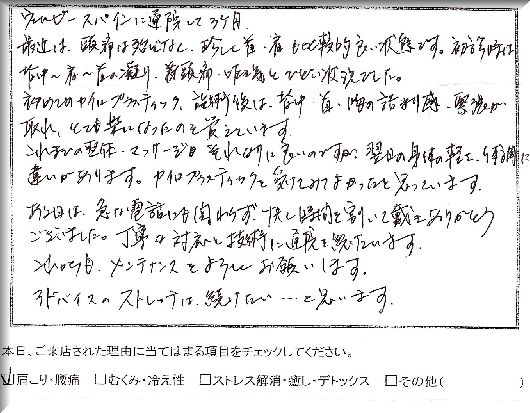 ウェルビースパインに通院して3ヶ月
最近は、頭痛は殆どなし、珍しく首・肩も比較的良い状態です。初診時は
背中〜肩〜首の凝り、首頭痛・吐き気とひどい状況でした。
初めてのカイロプラクティック、施術後は、背中・首・胸の詰まり感・緊張が
取れ、とても楽になったのを覚えています。
これまでの整体・マッサージもそれなりに良いのですが、翌日の身体の軽さ、に
違いがあります。カイロプラクティックを受けてみてよかったと思っています。
お日は、急な電話にも関わらず、快く時間を割いて戴きありがとう
ございました。丁寧な対応と技術に通院を続けています。
これからも、メンテナンスをよろしくお願いします。
アドバイスのストレッチは、続けたい…と思います。
本日、ご来店された理由に当てはまる項目をチェックしてください。
☑肩こり・腰痛 □むくみ・冷え性 □ストレス解消・癒し・デトックス □その他( )